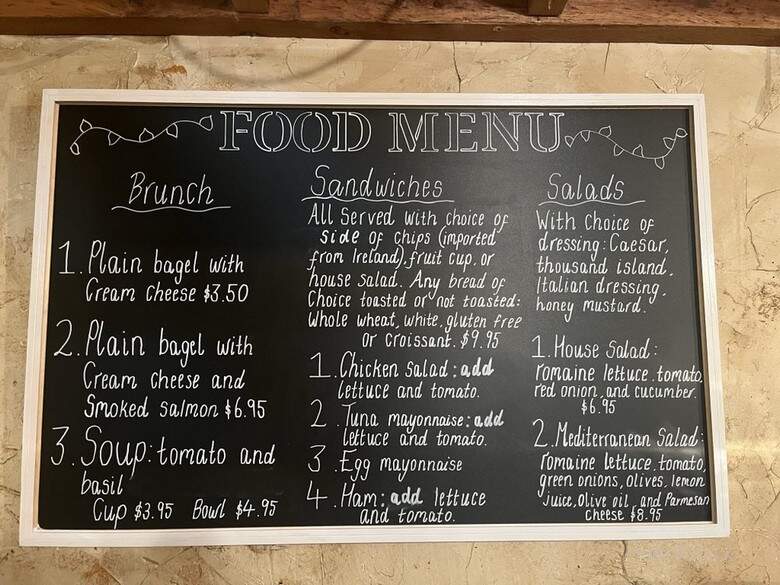 FOOD MENU
Brunch
1. Plain bagel with
Cream cheese $3.50
2. Plain bagel with
Cream cheese and
Smoked salmon $6.95
3. Soup: tomato and
basil
Cup $3.95 Bowl $4.95
Sandwiches
All Served with choice of
side of chips (imported
from Ireland), fruit cup, or
house salad. Any bread of
Choice toasted or not toasted:
Whole wheat, white, gluten free
or croissant. $9.95
1. Chicken salad: add
lettuce and tomato.
2. Tuna mayonnaise: add
lettuce and tomato.
3. Egg mayonnaise
4. Ham: add lettuce
and tomato.
Salads
With Choice of
dressing: Caesar,
thousand island,
Italian dressing,
honey mustard.
1. House Salad:
romaine lettuce, tomato,
red onion, and cucumber.
$6.95
2. Mediterranean Salad:
romaine lettuce, tomato,
green onions, olives, lemon
juice, olive oil, and Parmesan
cheese $8.95